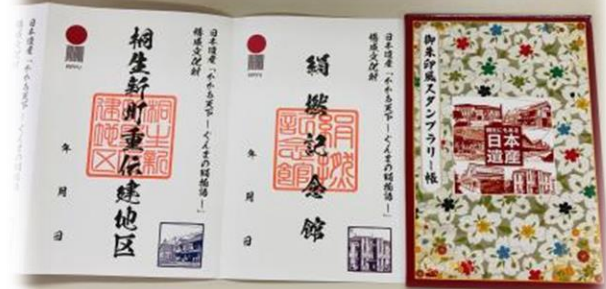 日本遺産「かかあ天下ーぐんまの絹物語ー」
構成文化財
桐生新町重伝建地区
桐生新
町重伝
建地区
年 月 日
日本遺産「かかあ天下ーぐんまの絹物語ー」
構成文化財
絹撚記念館
絹撚
記念館
年 月 日
御朱印風スタンプラリー帳
日本
遺産